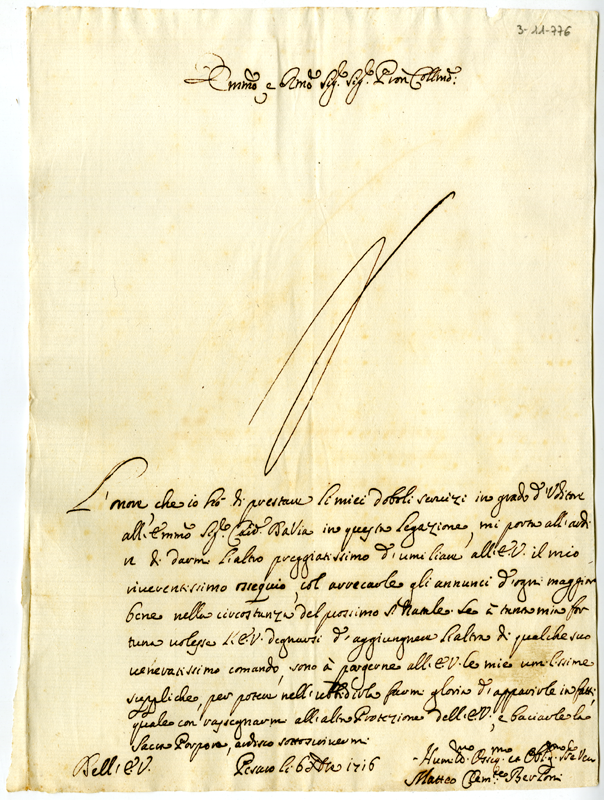 3-11-776
Emmo e Rmo Sigr. Sigr. Pron Collmo.
L'onor che io hò di prestare li miei deboli servizi in grado d'Uditore
all'Emmo Sigr. Card. Davia in questa legazione, mi porta all'ardi
re di darmi l'altro preggiatissimo d'umiliare all'E.V. il mio
riverentissimo ossequio, col arrecarle gli annunci d'ogni maggior
bene nella circostanza del prossimo Sto Natale. Se à tanta mia for
tuna volesse l'E.V. degnarsi d'aggiungere l'altra di qualche suo
veneratissimo comando, sono à porgerne all'E.V. le mie umilissime
suppliche, per poter nell'ubbidirla farmi gloria d'apparirle in fatti
quale con rassegnarmi all'alta Protezione dell'E.V., e baciarle la
Sacra Porpora, ardisco sottoscrivermi
Dell'E.V.
Pesaro li 6 Xbre 1716
Humilmo Ossequmo et Oblmo
Matteo Clemte